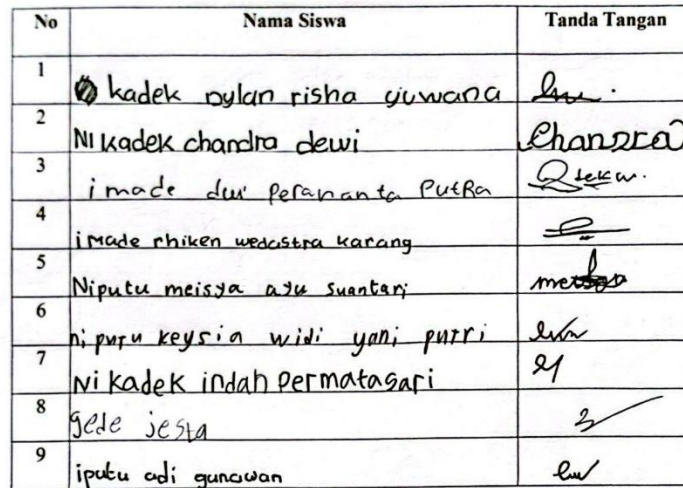 No Nama Siswa Tanda Tangan
1 kadek dylan risha yuwana
2 Ni kadek chandra dewi Chandra
3 i made dwi perananta PutRa
4 i Made rhiken wedastra karang
5 Niputu meisya ayu suantari
6 ni putu keysia widi yani putri
7 Ni kadek indah Permatasari
8 gede jesta
9 iputu adi gunawan